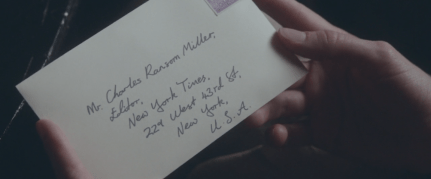 Mr. Charles Ransom Miller,
Editor,
New York Times,
229 West 43rd St,
New York,
U.S.A.